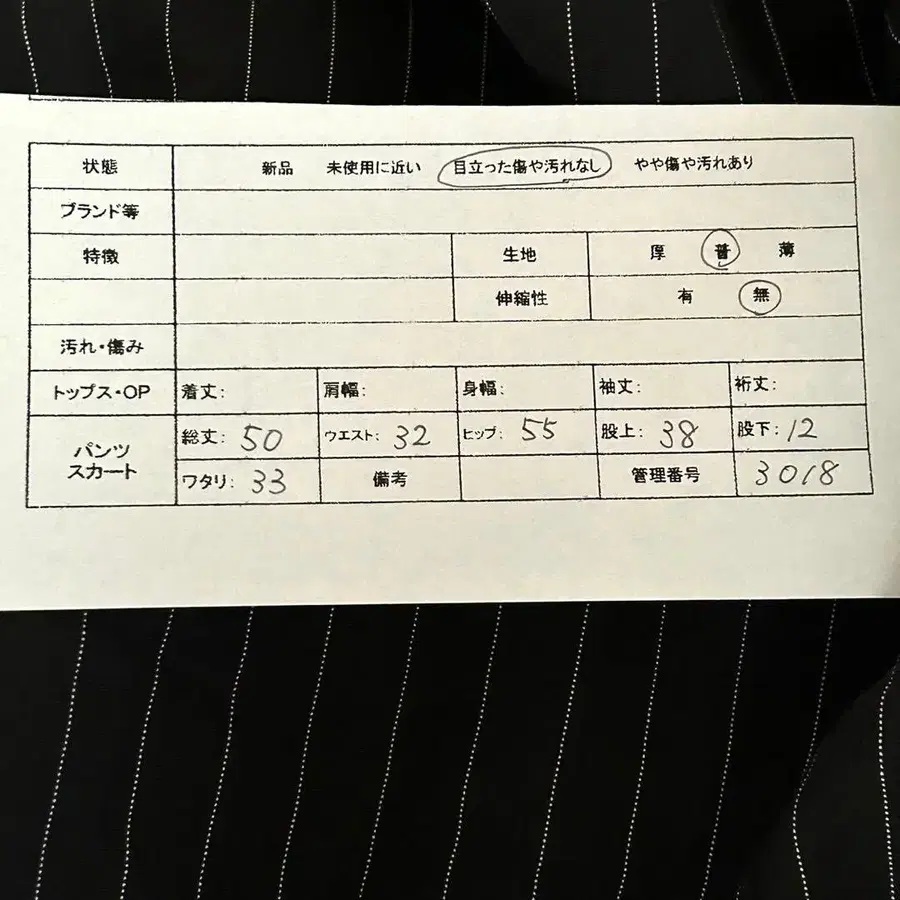 状態 新品 未使用に近い 目立った傷や汚れなし やや傷や汚れあり
ブランド等
特徴 生地 厚 普 薄
伸縮性 有 無
汚れ・傷み
トップス・OP 着丈: 肩幅: 身幅: 袖丈: 裄丈:
パンツ スカート 総丈: 50 ウエスト: 32 ヒップ: 55 股上: 38 股下: 12
ワタリ: 33 備考 管理番号 3018